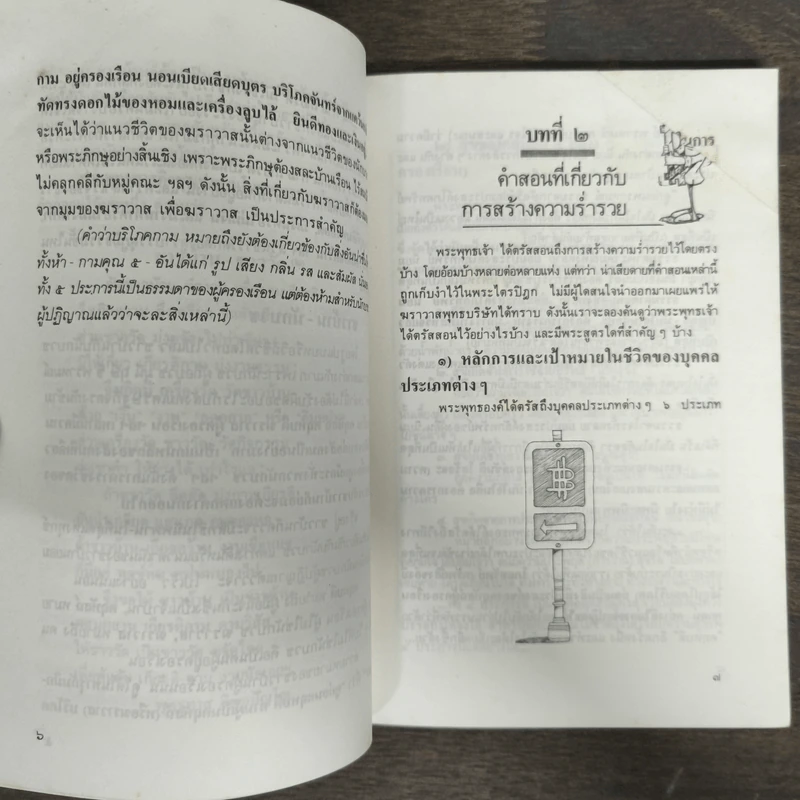 กาม อยู่ครองเรือน นอนเบียดเสียดบุตร บริโภคจันทร์จาก
ทัดทรงดอกไม้ของหอมและเครื่องลูบไล้ ยินดีทองและเงิน
จะเห็นได้ว่าแนวชีวิตของฆราวาสนั้นต่างจากแนวชีวิตของ
หรือพระภิกษุอย่างสิ้นเชิง เพราะพระภิกษุต้องสละบ้านเรือน
ไม่คลุกคลีกับหมู่คณะ ฯลฯ ดังนั้น สิ่งที่เกี่ยวกับฆราวาสก็ต้อง
จากมุมของฆราวาส เพื่อฆราวาส เป็นประการสำคัญ
(คำว่าบริโภคกาม หมายถึงยังต้องเกี่ยวข้องกับสิ่งอัน
ทั้งห้า - กามคุณ ๕ - อันได้แก่ รูป เสียง กลิ่น รส และสัมผัส
ทั้ง ๕ ประการนี้เป็นธรรมดาของผู้ครองเรือน แต่ต้องห้ามสำหรับ
ผู้ปฏิญาณแล้วว่าจะละสิ่งเหล่านี้)
๖
บทที่ ๒
คำสอนที่เกี่ยวกับ
การสร้างความร่ำรวย
พระพุทธเจ้า ได้ตรัสสอนถึงการสร้างความร่ำรวยไว้โดยตรง
บ้าง โดยอ้อมบ้างหลายต่อหลายแห่ง แต่ทว่า น่าเสียดายที่คำสอนเหล่านี้
ถูกเก็บงำไว้ในพระไตรปิฎก ไม่มีผู้ใดสนใจนำออกมาเผยแพร่ให้
ฆราวาสพุทธบริษัทได้ทราบ ดังนั้นเราจะลองค้นดูว่าพระพุทธเจ้า
ได้ตรัสสอนไว้อย่างไรบ้าง และมีพระสูตรใดที่สำคัญ ๆ บ้าง
๑) หลักการและเป้าหมายในชีวิตของบุคคล
ประเภทต่าง ๆ
พระพุทธองค์ได้ตรัสถึงบุคคลประเภทต่าง ๆ ๖ ประเภท
฿
๗